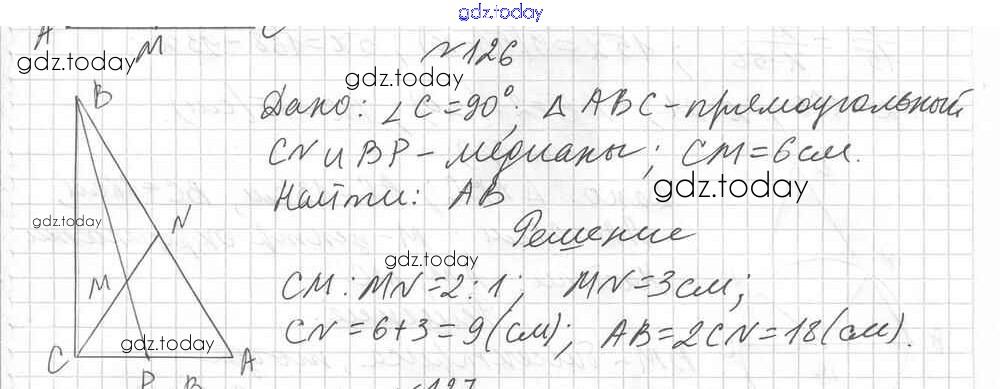 gdz.today
A M C
gdz.today
№126
gdz.today
B
Дано: ∠C=90°; △ABC-прямоугольный
CN и BP-медианы; CM=6см.
gdz.today
Найти: AB
gdz.today
N
Решение
gdz.today
M
CM:MN=2:1; MN=3см;
CN=6+3=9(см); AB=2CN=18(см).
gdz.today
C A
P B
№127